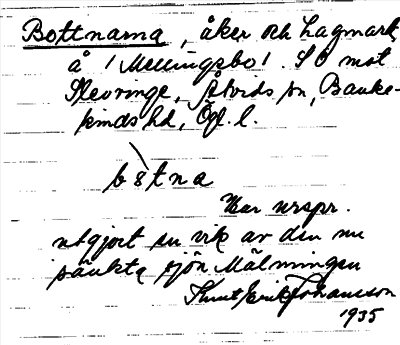 Bottnarna, åker och hagmark
å (Mellingsbo). SO mot
Slevringe, Åtvids sn, Banke-
kinds hd, Ögl. l.
bòtna
Har urspr.
utgjort en vik av den nu
sänkta sjön Målmingen
Knut Erik Johansson
1935